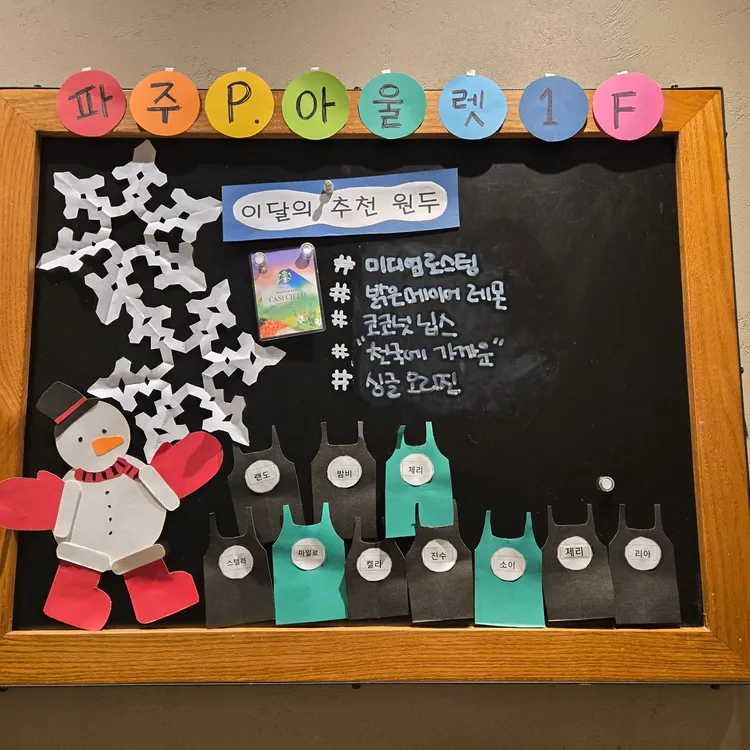 파주P.아울렛1F
이달의 추천 원두
CASI CIELO
# 미디엄로스팅
# 밝은메이어 레몬
# 코코넛 닙스
# "천국에 가까운"
# 싱글 오리진
랜도 밤비 체리
스텔라 마일로 켈리 진수 소이 제리 리아